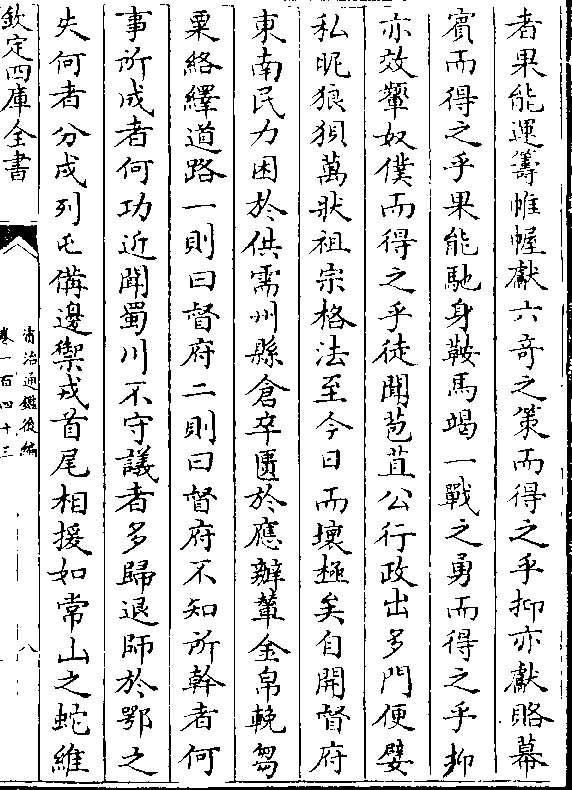 者果能運籌帷幄獻六奇之策而得之乎抑亦獻賂幕
賓而得之乎果能馳身鞍馬竭一戰之勇而得之乎抑
亦效顰奴僕而得之乎徒聞苞苴公行政出多門便嬖
私昵狼狽萬狀祖宗格法至今日而壞極矣自開督府
東南民力困於供需州縣倉卒匱於應辦輦金帛輓芻
粟絡繹道路一則曰督府二則曰督府不知所幹者何
事所成者何功近聞蜀川不守議者多歸退師於鄂之
失何者分戍列屯備邊禦戎首尾相援如常山之蛇維
欽定四庫全書
資治通鑑後編
卷一百四十三
八